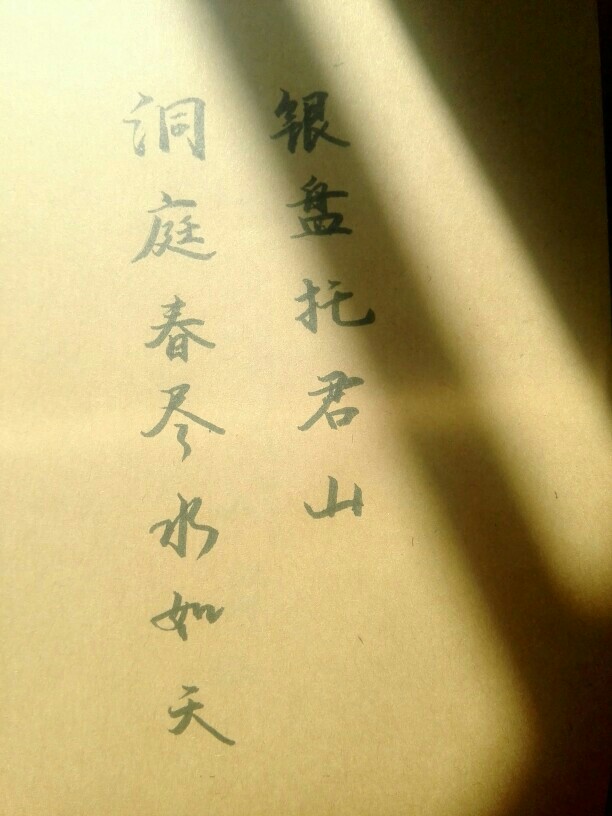 银盘托君山
洞庭春尽水如天